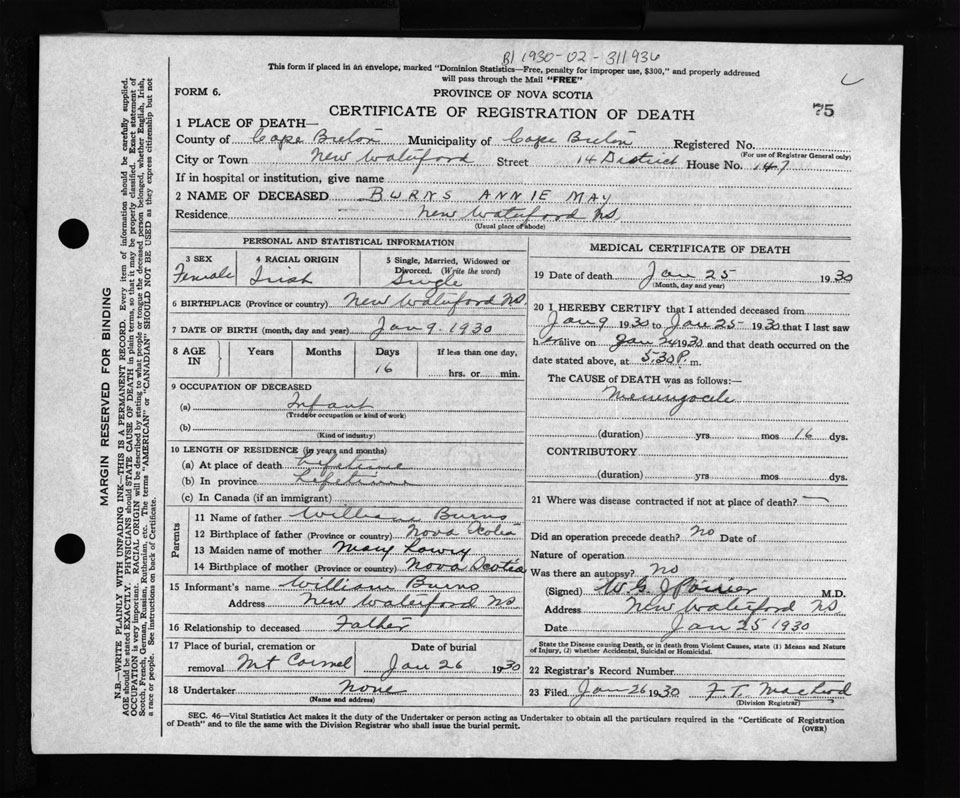 B1 1930-02-311936
This form if placed in an envelope, marked "Dominion Statistics—Free, penalty for improper use, $300," and properly addressed
will pass through the Mail "FREE"
FORM 6.
PROVINCE OF NOVA SCOTIA
CERTIFICATE OF REGISTRATION OF DEATH
75
1 PLACE OF DEATH—
County of Cape Breton Municipality of Cape Breton Registered No.
(For use of Registrar General only)
City or Town New Waterford Street 14 District House No. 147
If in hospital or institution, give name
2 NAME OF DECEASED BURNS ANNIE MAY
Residence New Waterford NS.
(Usual place of abode)
PERSONAL AND STATISTICAL INFORMATION
3 SEX
Female
4 RACIAL ORIGIN
Irish
5 Single, Married, Widowed or
Divorced. (Write the word)
Single
6 BIRTHPLACE (Province or country) New Waterford NS.
7 DATE OF BIRTH (month, day and year) Jan 9. 1930
8 AGE
IN
Years
Months
Days
16
If less than one day,
hrs. or min.
9 OCCUPATION OF DECEASED
(a) Infant
(Trade or occupation or kind of work)
(b)
(Kind of industry)
10 LENGTH OF RESIDENCE (in years and months)
(a) At place of death Lifetime
(b) In province Lifetime
(c) In Canada (if an immigrant)
Parents
11 Name of father William Burns
12 Birthplace of father (Province or country) Nova Scotia
13 Maiden name of mother Mary Lowry
14 Birthplace of mother (Province or country) Nova Scotia
15 Informant's name William Burns
Address New Waterford NS
16 Relationship to deceased Father
17 Place of burial, cremation or
removal Mt Carmel
Date of burial
Jan 26 1930
18 Undertaker None
(Name and address)
MEDICAL CERTIFICATE OF DEATH
19 Date of death Jan 25 1930
(Month, day and year)
20 I HEREBY CERTIFY that I attended deceased from
Jan 9 1930 to Jan 25 1930 that I last saw
her alive on Jan 24 1930 and that death occurred on the
date stated above, at 5.30 P. m.
The CAUSE of DEATH was as follows:—
Meningocele
(duration) yrs mos 16 dys.
CONTRIBUTORY
(duration) yrs mos dys.
21 Where was disease contracted if not at place of death? —
Did an operation precede death? No Date of
Nature of operation
Was there an autopsy? No
(Signed) W. G. J Poirier M.D.
Address New Waterford NS
Date Jan 25 1930
State the Disease causing Death, or in death from Violent Causes, state (1) Means and Nature
of Injury, (2) whether Accidental, Suicidal or Homicidal.
22 Registrar's Record Number
23 Filed Jan 26 1930 F. T. MacLeod
(Division Registrar)
SEC. 46—Vital Statistics Act makes it the duty of the Undertaker or person acting as Undertaker to obtain all the particulars required in the "Certificate of Registration
of Death" and to file the same with the Division Registrar who shall issue the burial permit.
(OVER)
MARGIN RESERVED FOR BINDING
N.B.—WRITE PLAINLY WITH UNFADING INK—THIS IS A PERMANENT RECORD. Every item of information should be carefully supplied.
AGE should be stated EXACTLY. PHYSICIANS should STATE CAUSE OF DEATH in plain terms, so that it may be properly classified. Exact statement of
OCCUPATION is very important. RACIAL ORIGIN will be described by stating to what people or tongue the deceased person belonged, whether English, Irish,
Scotch, French, German, Russian, Ruthenian, etc. The terms "AMERICAN" or "CANADIAN" SHOULD NOT BE USED as they express citizenship but not
a race or people. See instructions on back of Certificate.